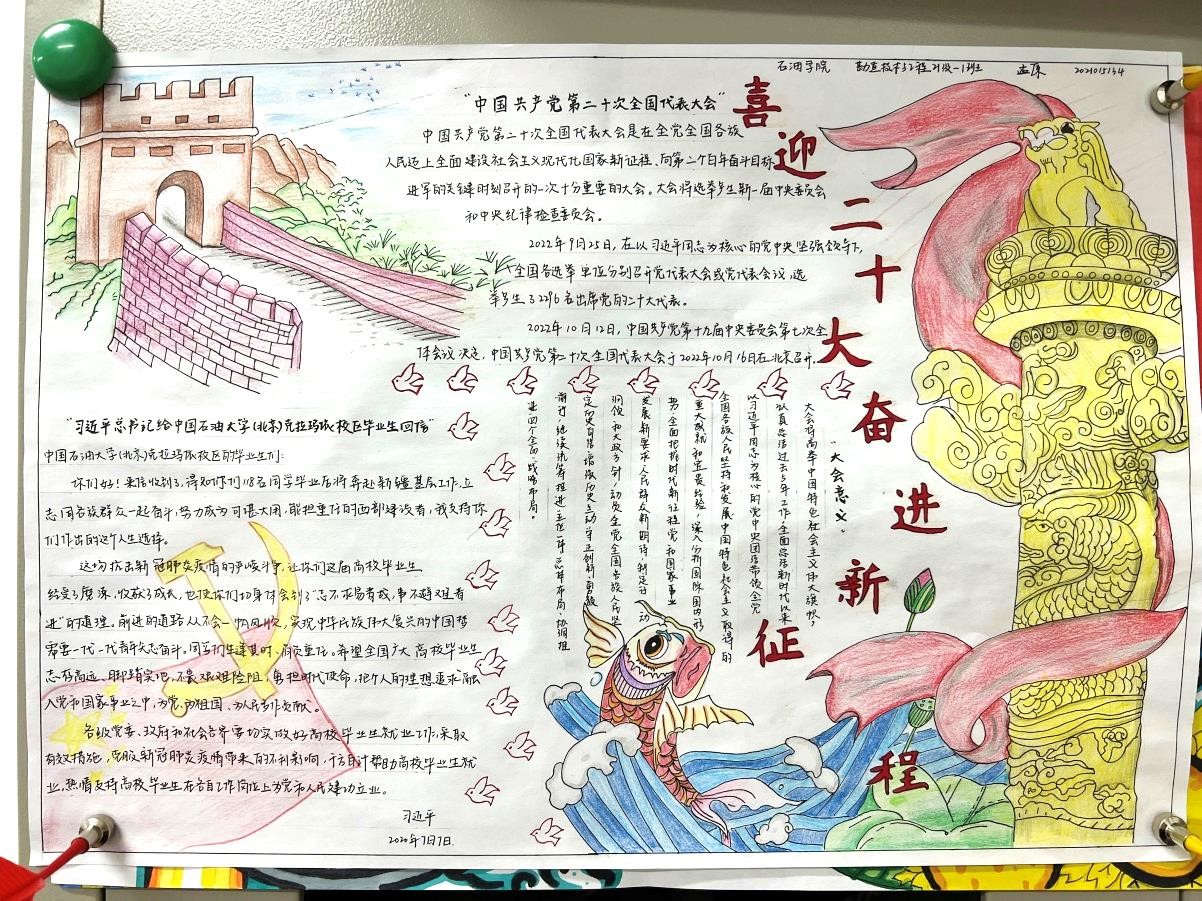 石油学院 勘查技术与工程21级-1班 孟原 2021015134
喜迎二十大奋进新征程
“中国共产党第二十次全国代表大会”
中国共产党第二十次全国代表大会是在全党全国各族
人民迈上全面建设社会主义现代化国家新征程、向第二个百年奋斗目标
进军的关键时刻召开的一次十分重要的大会。大会将选举产生新一届中央委员会
和中央纪律检查委员会。
2022年9月25日，在以习近平同志为核心的党中央坚强领导下，
全国各选举单位分别召开党代表大会或党代表会议，选
举产生了2296名出席党的二十大代表。
2022年10月12日，中国共产党第十九届中央委员会第七次全
体会议决定，中国共产党第二十次全国代表大会于2022年10月16日在北京召开。
“习近平总书记给中国石油大学(北京)克拉玛依校区毕业生回信”
中国石油大学(北京)克拉玛依校区的毕业生们：
你们好！来信收到了，得知你们118名同学毕业后将奔赴新疆基层工作，立
志同各族群众一起奋斗，努力成为可堪大用、能担重任的西部建设者，我支持你
们作出的这个人生选择。
这场抗击新冠肺炎疫情的严峻斗争，让你们这届高校毕业生
经受了磨炼、收获了成长，也使你们切身体会到了“志不求易者成，事不避难者
进”的道理。前进的道路从不会一帆风顺，实现中华民族伟大复兴的中国梦
需要一代一代青年矢志奋斗。同学们生逢其时、肩负重任。希望全国广大高校毕业生
志存高远、脚踏实地，不畏艰难险阻，勇担时代使命，把个人的理想追求融
入党和国家事业之中，为党、为祖国、为人民多作贡献。
各级党委、政府和社会各界要切实做好高校毕业生就业工作，采取
有效措施，克服新冠肺炎疫情带来的不利影响，千方百计帮助高校毕业生就
业，热情支持高校毕业生在各自工作岗位上为党和人民建功立业。
习近平
2020年7月7日
“大会意义”
大会将高举中国特色社会主义伟大旗帜，
认真总结过去5年工作，全面总结新时代以来
以习近平同志为核心的党中央团结带领全党
全国各族人民坚持和发展中国特色社会主义取得的
重大成就和宝贵经验，深入分析国际国内形
势，全面把握时代新征程党和国家事业
发展新要求、人民群众新期待，制定行动
纲领和大政方针，动员全党全国各族人民坚
定历史自信、增强历史主动，守正创新、勇毅
前行，继续统筹推进五位一体总体布局、协调推
进四个全面战略布局。